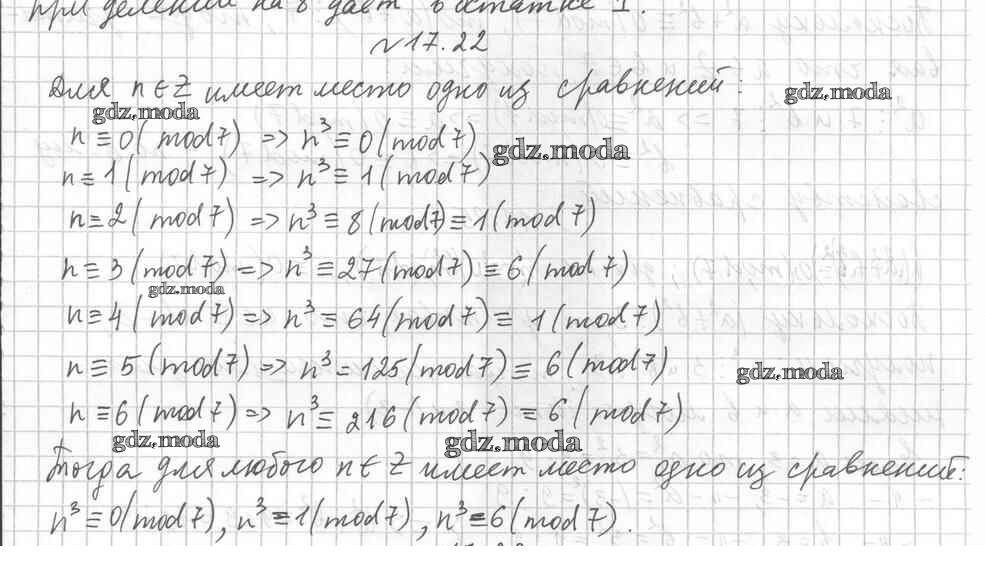 при делении на 8 даёт в остатке 1.
№17.22
Для n ∈ Z имеет место одно из сравнений:
gdz.moda
gdz.moda
n ≡ 0 (mod 7) => n³ ≡ 0 (mod 7)
gdz.moda
n ≡ 1 (mod 7) => n³ ≡ 1 (mod 7)
n ≡ 2 (mod 7) => n³ ≡ 8 (mod 7) ≡ 1 (mod 7)
n ≡ 3 (mod 7) => n³ ≡ 27 (mod 7) ≡ 6 (mod 7)
gdz.moda
n ≡ 4 (mod 7) => n³ ≡ 64 (mod 7) ≡ 1 (mod 7)
n ≡ 5 (mod 7) => n³ = 125 (mod 7) ≡ 6 (mod 7)
gdz.moda
n ≡ 6 (mod 7) => n³ ≡ 216 (mod 7) ≡ 6 (mod 7)
gdz.moda
gdz.moda
Тогда для любого n ∈ Z имеет место одно из сравнений:
n³ ≡ 0 (mod 7), n³ ≡ 1 (mod 7), n³ ≡ 6 (mod 7).